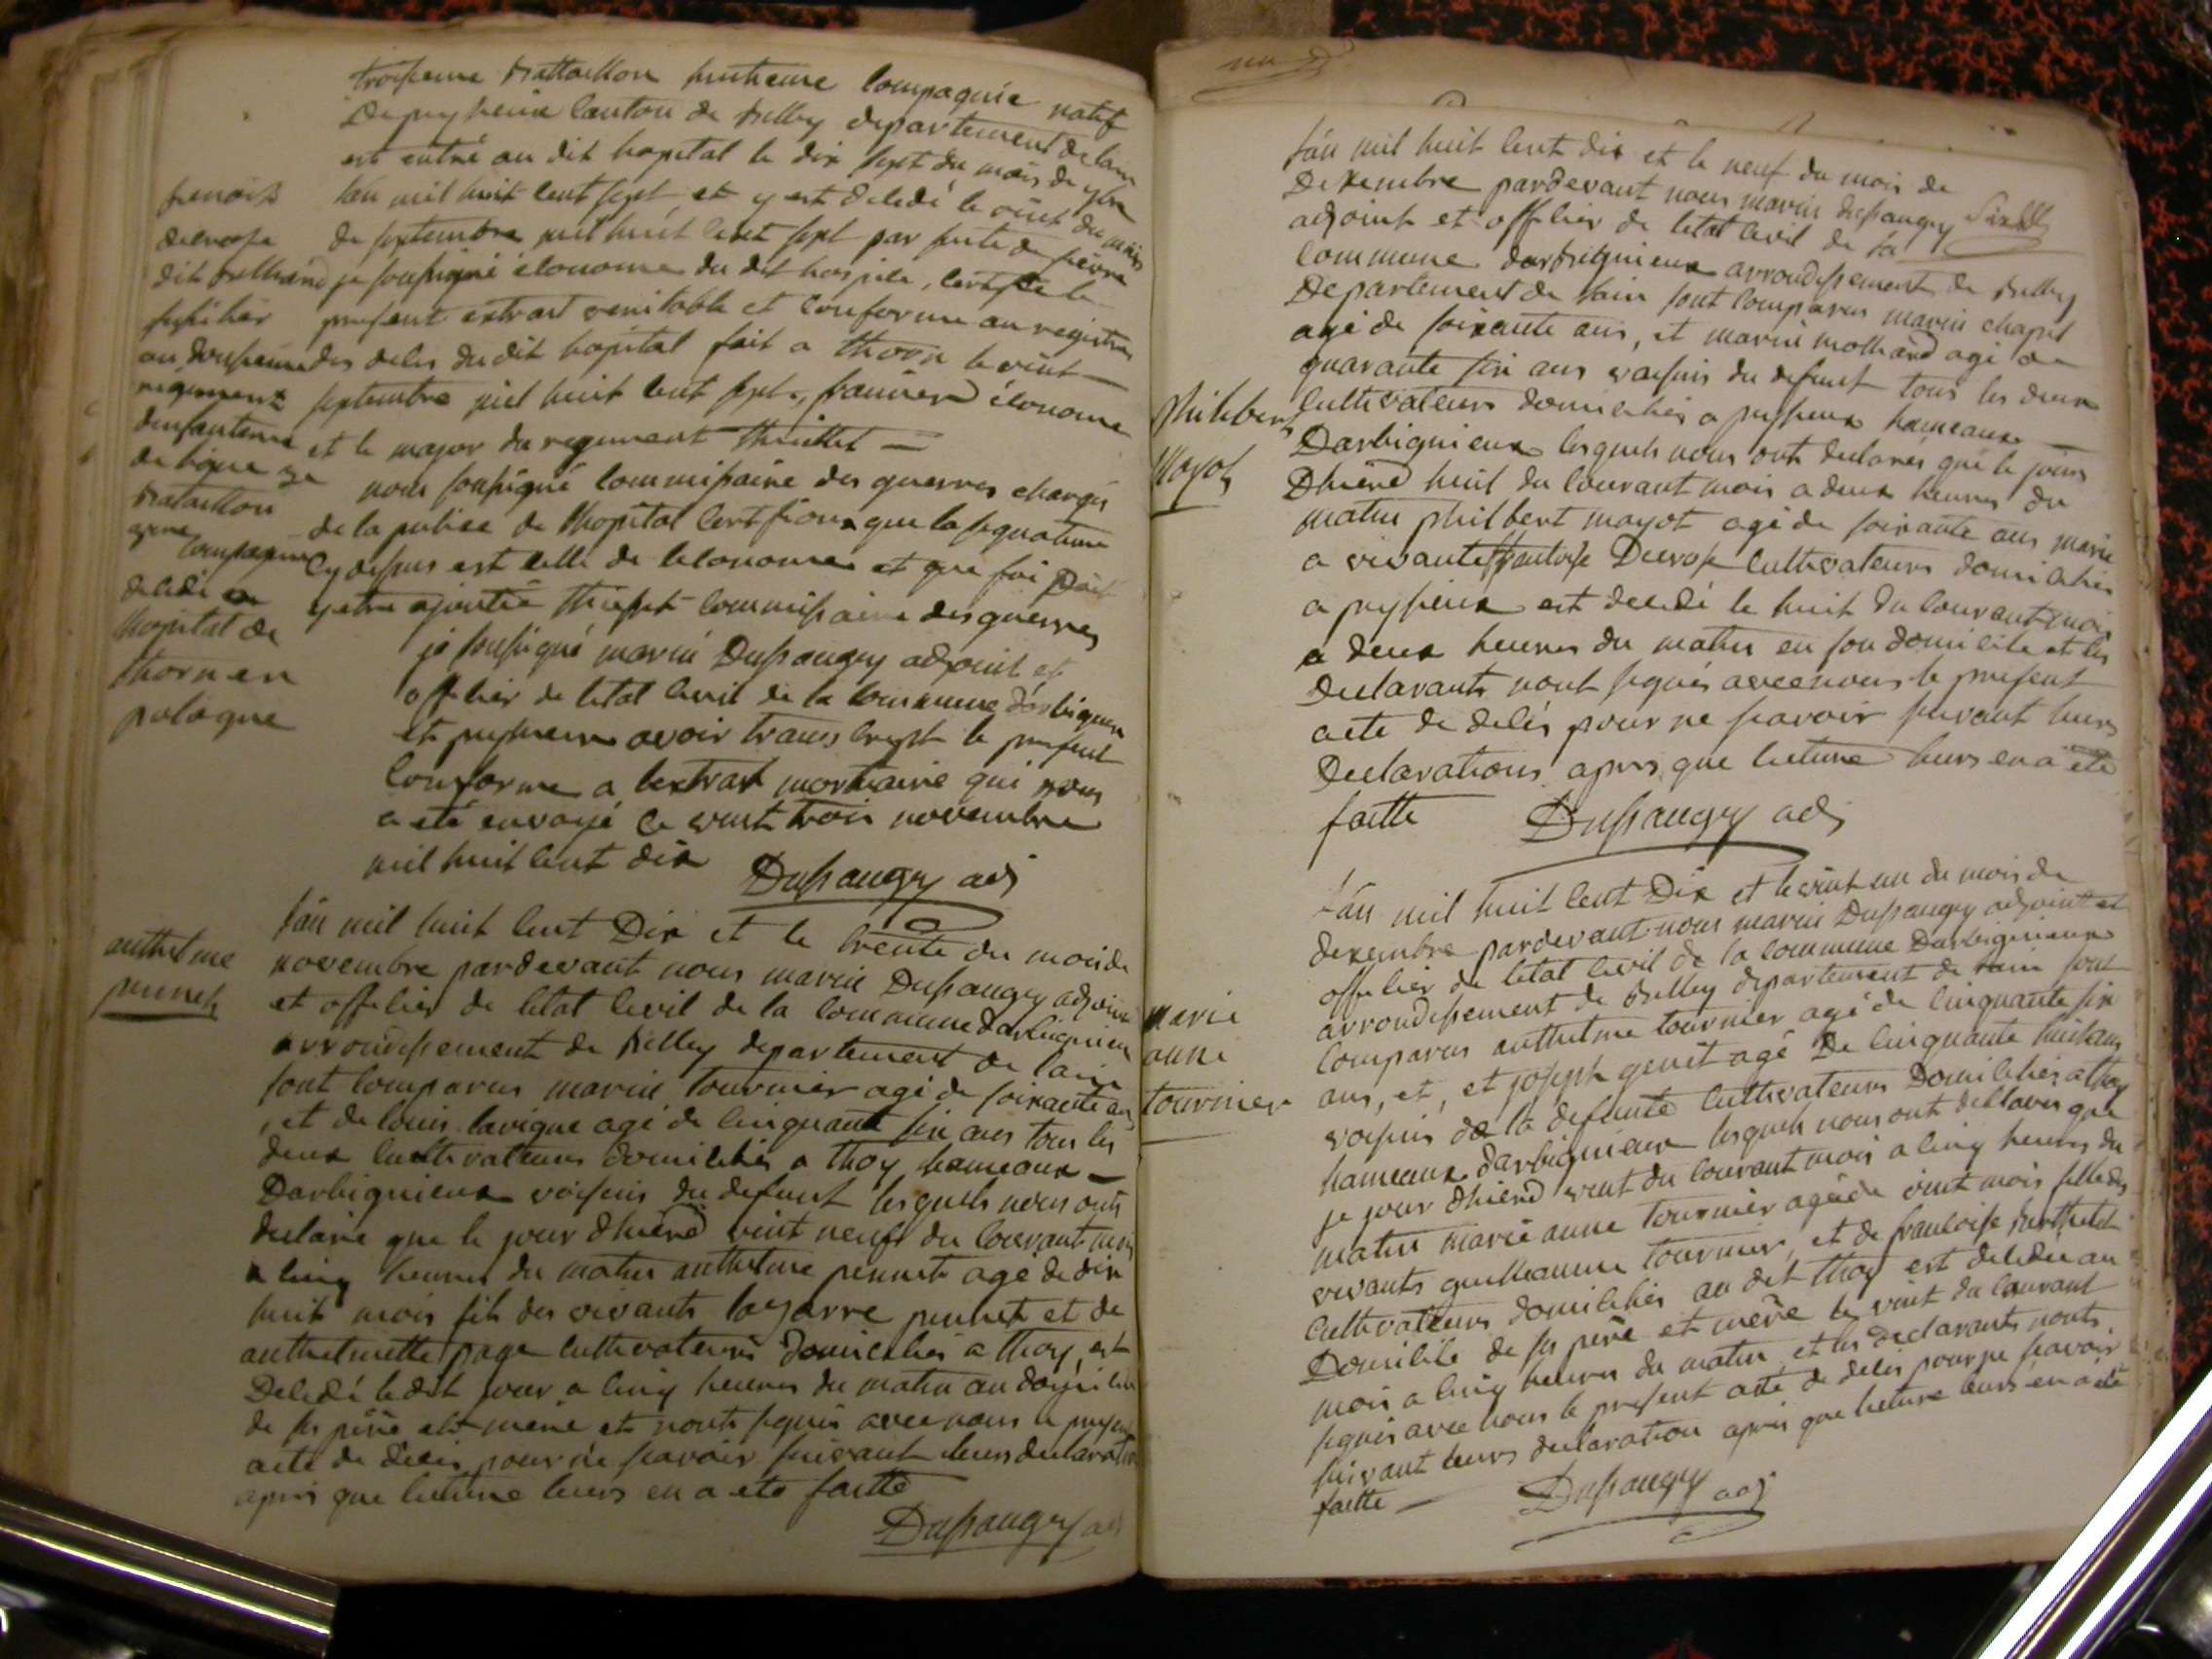 troisieme Battaillon huitieme Compagnie natif
De peyzieux Canton de Belley departement de lain
est entré au dit hopital le dix sept du mois de 7bre
lan mil huit Cent sept et y est decedé le vint du mois
de septembre mil huit Cent sept par suite de fievre
je soussigné économe du dit hospice, Certifie le
present extrait veritable et Conforme au registre
des deces du dit hopital fait a thorn le vint
septembre mil huit Cent sept, économe
et le major du regiment
nous soussigné Commissaire des guerres chargés
de la police de lhopital Certifions que la signature
Cy dessus est Celle de leconome et que foi doit
y etre ajoutée Commissaire des guerres
je soussigné marin Dussaugey adjoint et
officier de letat Civil de la Commune darbignieu
et peyzieux avoir transcript le present
Conforme a lextrait mortuaire qui nous
a eté envoyé Ce vint trois novembre
mil huit Cent dix Dussaugey adj
benoit
decrose
dit Belliand
fusilier
au douzieme
regiment
dinfanterie
de ligne 3e
Bataillon
Compagnie
decedé a
lhopital de
thorn en
pologne
lan mil huit Cent Dix et le trente du mois de
novembre pardevant nous marin Dussaugey adjoint
et officier de letat Civil de la Commune darbignieu
arrondissement de Belley departement de lain
sont Comparus marin tournier agé de soixante ans
, et de louis lavigne agé de Cinquante six ans tous les
deux Cultivateurs domiciliés a thoy hameaux
Darbignieux voisins du defunt lesquels nous onts
declaré que le jour dhiere vint neuf du Courant mois
a Cinq heures du matin anthelme pennet agé de dix
huit mois fils des vivants lazarre pennet et de
anthelmette page Cultivateurs domiciliés a thoy, est
Decedé le dit jour a Cinq heures du matin au domicile
de ses père et mere et nonts signés avec nous le present
acte de deces pour ne scavoir suivant leurs declaration
apres que lecture leurs en a ete faitte
Dussaugey adj
anthelme
pennet
lan mil huit Cent dix et le neuf du mois de
Dexembre pardevant nous marin dussaugey
adjoint et officier de letat Civil de la
Commune darbignieux arrondissement de Belley
Departement de lain sont Comparus marin chapel
agé de soixante ans, et marin molliand agé de
quarante six ans voisins du defunt tous les deux
Cultivateurs domiciliés a peyzieux hameaux
Darbignieux lesquels nous onts declarés que le jour
Dhiere huit du Courant mois a deux heures du
matin philbert mayot agé de soixante ans marie
a vivante francoise Decrose Cultivateurs domiciliés
a peyzieux est decedé le huit du Courant mois
a deux heures du matin en son domicile et les
Declarants nont signés avec nous le present
acte de deces pour ne scavoir suivant leurs
Declarations apres que lecture leurs en a ete
faitte Dussaugey adj
philibert
Mayot
lan mil huit Cent Dix et le vint un du mois de
dexembre pardevant nous marin Dussaugey adjoint et
officier de letat Civil de la Commune Darbignieux
arrondissement de Belley departement de lain sont
Comparus anthelme tournier agé de Cinquante six
ans, et, et joseph genet agé De Cinquante huit ans
voisins de la defunte Cultivateurs Domiciliés a thoy
hameaux darbignieux lesquels nous ont declarés que
je jour dhiere vint du Courant mois a Cinq heures du
matin marie anne tournier agée de vint mois fille des
vivants guilleaume tournier, et de francoise berthelet
Cultivateurs domiciliés au dit thoy est decedee au
Domicile de ses père et mère le vint du Courant
mois a Cinq heures du matin et les declarants nonts
signés avec nous le present acte de deces pour ne scavoir
suivant leurs declaration apres que lecture leurs en a ete
faitte Dussaugey adj
marie
anne
tournier